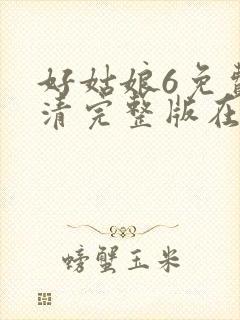 好姑娘6免费
清完整版在
螃蟹玉米